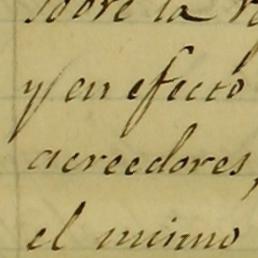 sobre la
y en efecto
acreedores,
el mismo